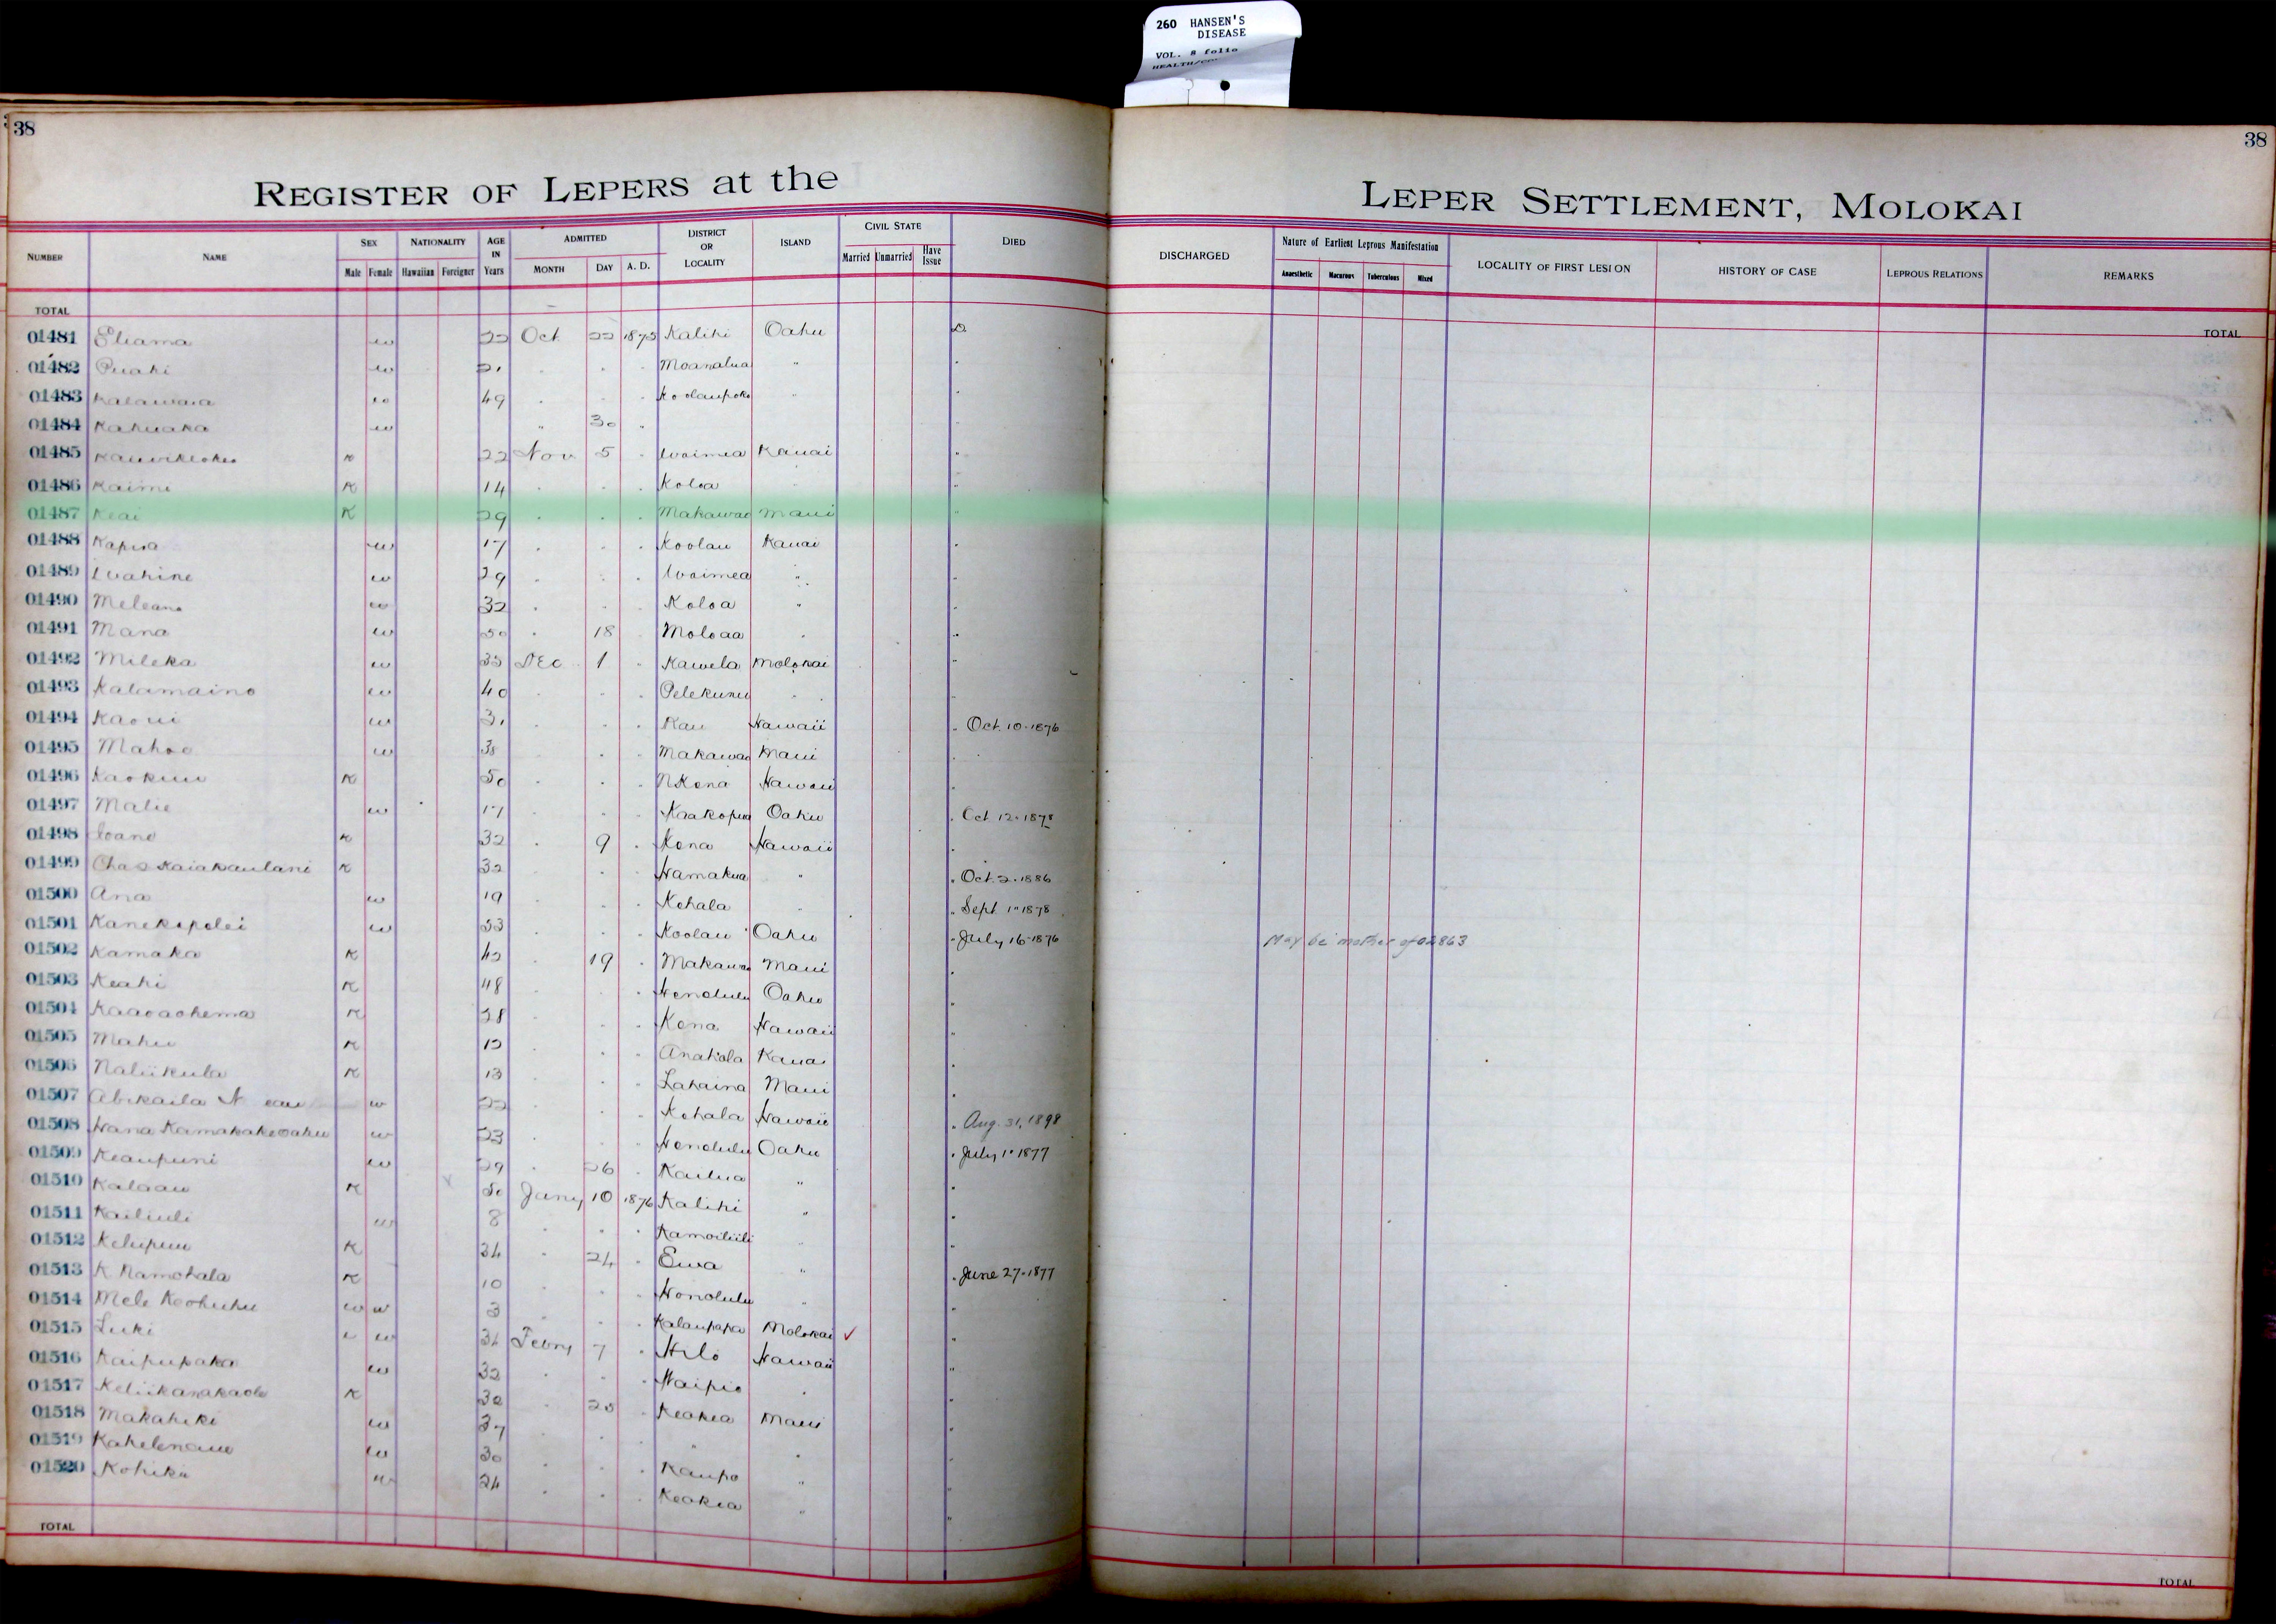 260 HANSEN'S
DISEASE
VOL. 8 folio
38
38
REGISTER OF LEPERS at the
LEPER SETTLEMENT, MOLOKAI
NUMBER NAME SEX Male Female NATIONALITY Hawaiian Foreigner AGE IN Years ADMITTED MONTH DAY A. D. DISTRICT OR LOCALITY ISLAND CIVIL STATE Married Unmarried Have Issue DIED
DISCHARGED Nature of Earliest Leprous Manifestation Anaesthetic Macurous Tuberculous Mixed LOCALITY OF FIRST LESION HISTORY OF CASE LEPROUS RELATIONS REMARKS
TOTAL
TOTAL
01481 Eliama w 22 Oct 22 1875 Kalihi Oahu D
01482 Puahi w 21 . . . Moanalua "
01483 Kalawaia w 49 . . . Koolaupoko "
01484 Kahuaka w " 30 "
01485 K 22 Nov 5 . Waimea Kauai "
01486 Kaimi K 14 . . . Koloa "
01487 Keai K 29 . . . Makawao Maui "
01488 Kapua w 17 . . . Koolau Kauai "
01489 Wahine w 29 . . . Waimea " "
01490 Meleana w 32 . . . Koloa " "
01491 Mana w 50 . 18 . Moloaa " "
01492 Mileka w 35 Dec 1 " Kawela Molokai "
01493 Kalamaino w 40 . . . Pelekunu " "
01494 Kaoui w 31 . . . Kau Hawaii " Oct. 10. 1876
01495 Mahoe w 38 . . . Makawao Maui "
01496 Kaokuu K 50 . . . N Kona Hawaii "
01497 Malie w 17 . . . Kaakopua Oahu " Oct 12. 1878
01498 Ioane K 32 . 9 . Kona Hawaii "
01499 Chas Kaiakaulani K 32 . . . Hamakua " " Oct. 2. 1886
01500 Ana w 19 . . . Kohala " " Sept. 1" 1878
01501 Kanekapolei w 53 . . . Koolau Oahu " July 16 1876 May be mother of 02863
01502 Kamaka K 42 . 19 . Makawao Maui "
01503 Keahi K 48 . . . Honolulu Oahu "
01504 Kaaoaohema K 28 . . . Kona Hawaii "
01505 Mahu K 12 . . . Anahola Kauai "
01506 Naliikula K 13 . . . Lahaina Maui "
01507 Abikaila N w 22 . . . Kohala Hawaii " Aug. 31, 1898
01508 Hana Kamakakeoahu w 23 . . . Honolulu Oahu " July 1" 1877
01509 Keaupuni w 29 . 26 . Kailua " "
01510 Kalaau K 50 Jany 10 1876 Kalihi " "
01511 Kailiuli w 8 . . . Kamoiliili " "
01512 Kelupuu K 34 . 24 . Ewa " " June 27. 1877
01513 K Namohala K 10 . . . Honolulu " "
01514 Mele Keohuhu w w 3 . . . Kalaupapa Molokai ✓ "
01515 Luki w 34 Febry 7 . Hilo Hawaii "
01516 Kaipupaka w 32 . . . Waipio " "
01517 Keliikanakaole K 32 . 25 . Keokea Maui "
01518 Makahiki w 37 . . . " " "
01519 Kahelenaue w 30 . . . Kaupo " "
01520 Kohiki w 24 . . . Keokea " "
TOTAL
TOTAL